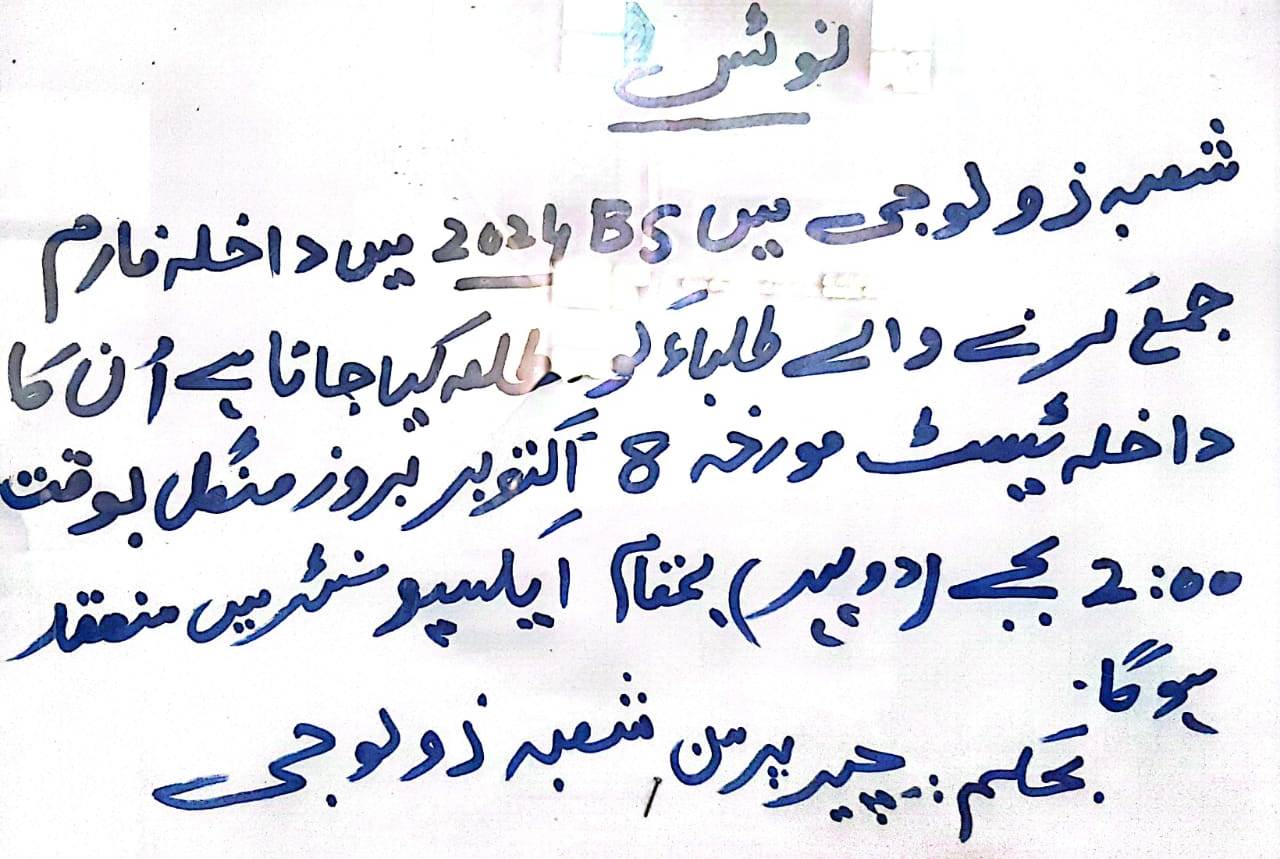 نوٹس
شعبہ ذولوجی میں BS 2024 میں داخلہ فارم
جمع کرنے والے طلباء کو مطلع کیا جاتا ہے اُن کا
داخلہ ٹیسٹ مورخہ 8 اکتوبر بروز منگل بوقت
2:00 بجے (دوپہر) بمقام ایکسپو سنٹر میں منعقد
ہوگا۔
بحکم :۔ چیئر پرسن شعبہ ذولوجی